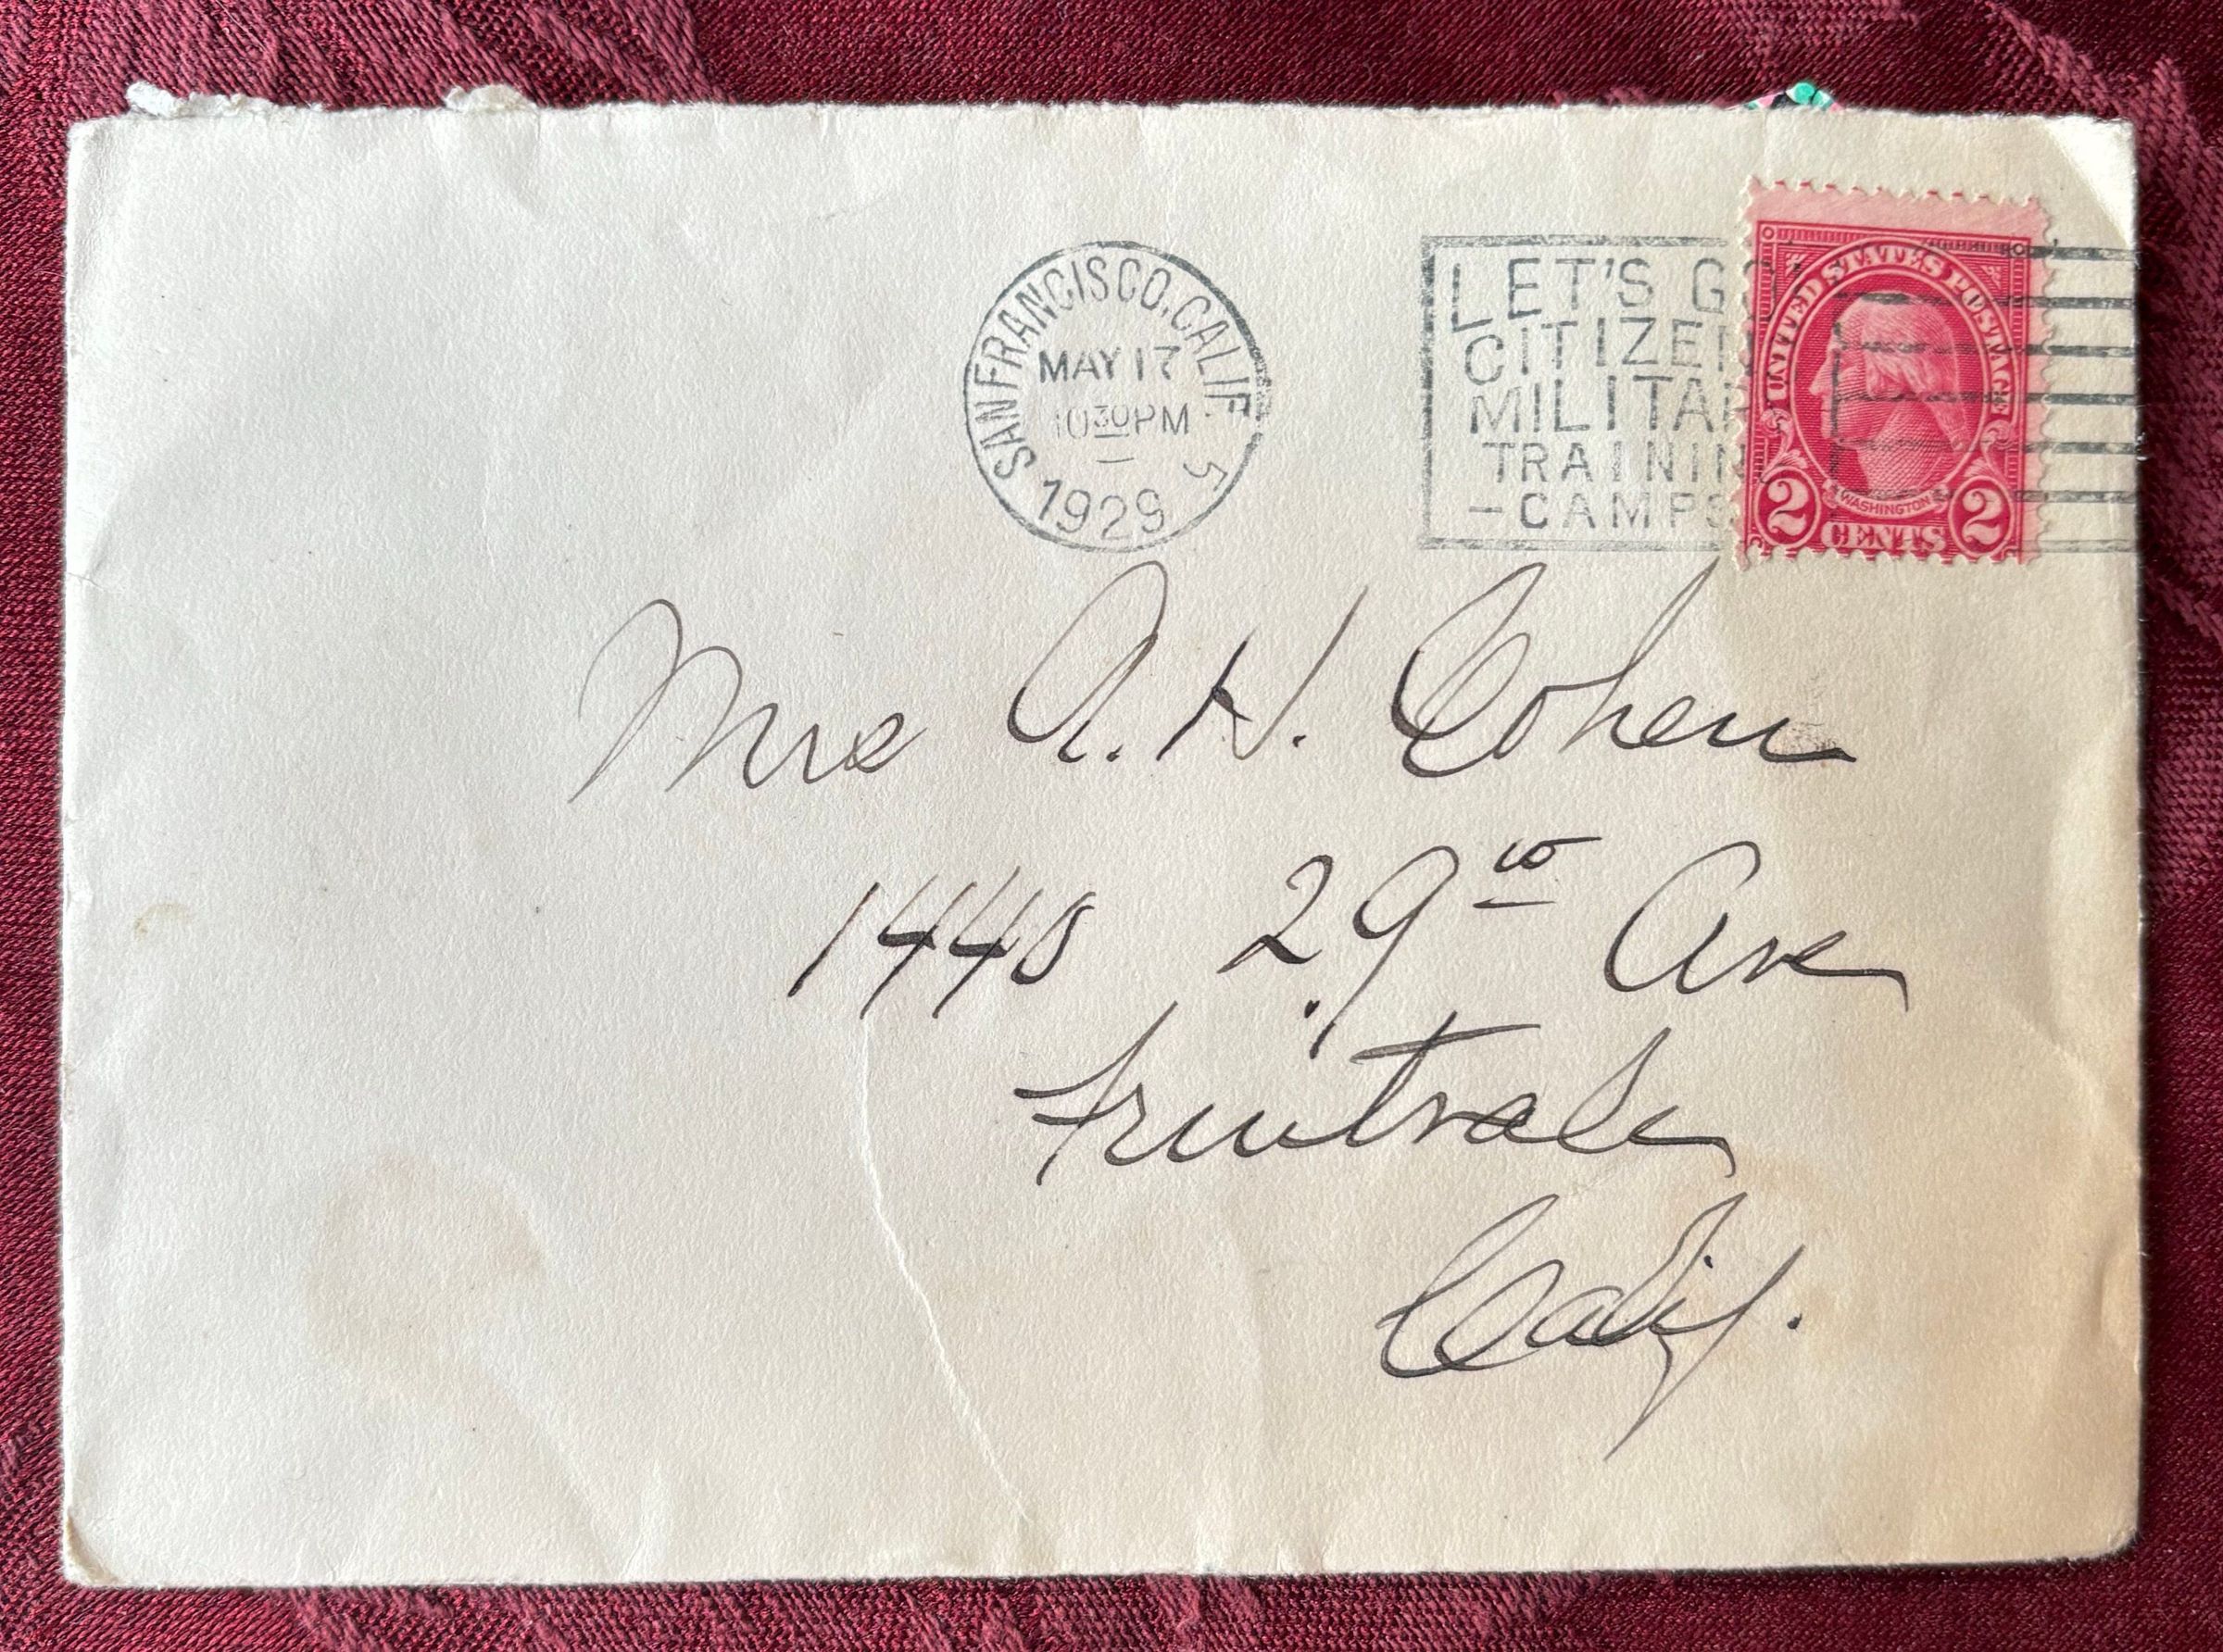 SAN FRANCISCO, CALIF.
MAY 17
10 30 PM
5
1929
LET'S GO!
CITIZEN
MILITAR
TRAININ
-CAMPS
UNITED STATES POSTAGE
WASHINGTON
2 CENTS 2
Mrs A. H. Cohen
1440 29th Ave
Fruitvale
Calif.